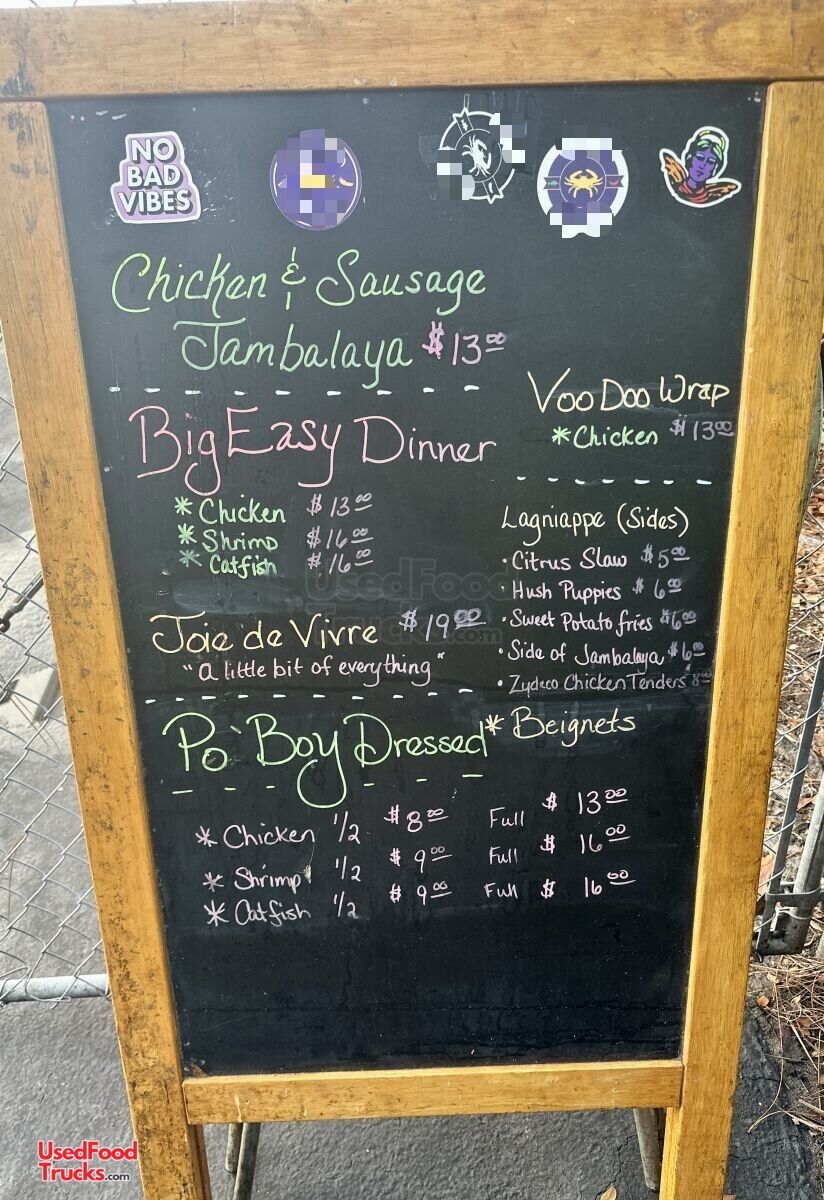 NO
BAD
VIBES
Chicken & Sausage
Jambalaya $13.00
Big Easy Dinner
* Chicken $13.00
* Shrimp $16.00
* Catfish $16.00
Joie de Vivre $19.00
"a little bit of everything"
VooDoo Wrap
* Chicken $13.00
Lagniappe (Sides)
· Citrus Slaw $5.00
· Hush Puppies $6.00
· Sweet Potato fries $6.00
· Side of Jambalaya $6.00
· Zydeco Chicken Tenders 8.00
* Beignets
Po' Boy Dressed
* Chicken 1/2 $8.00 Full $13.00
* Shrimp 1/2 $9.00 Full $16.00
* Catfish 1/2 $9.00 Full $16.00
UsedFood
Trucks.com